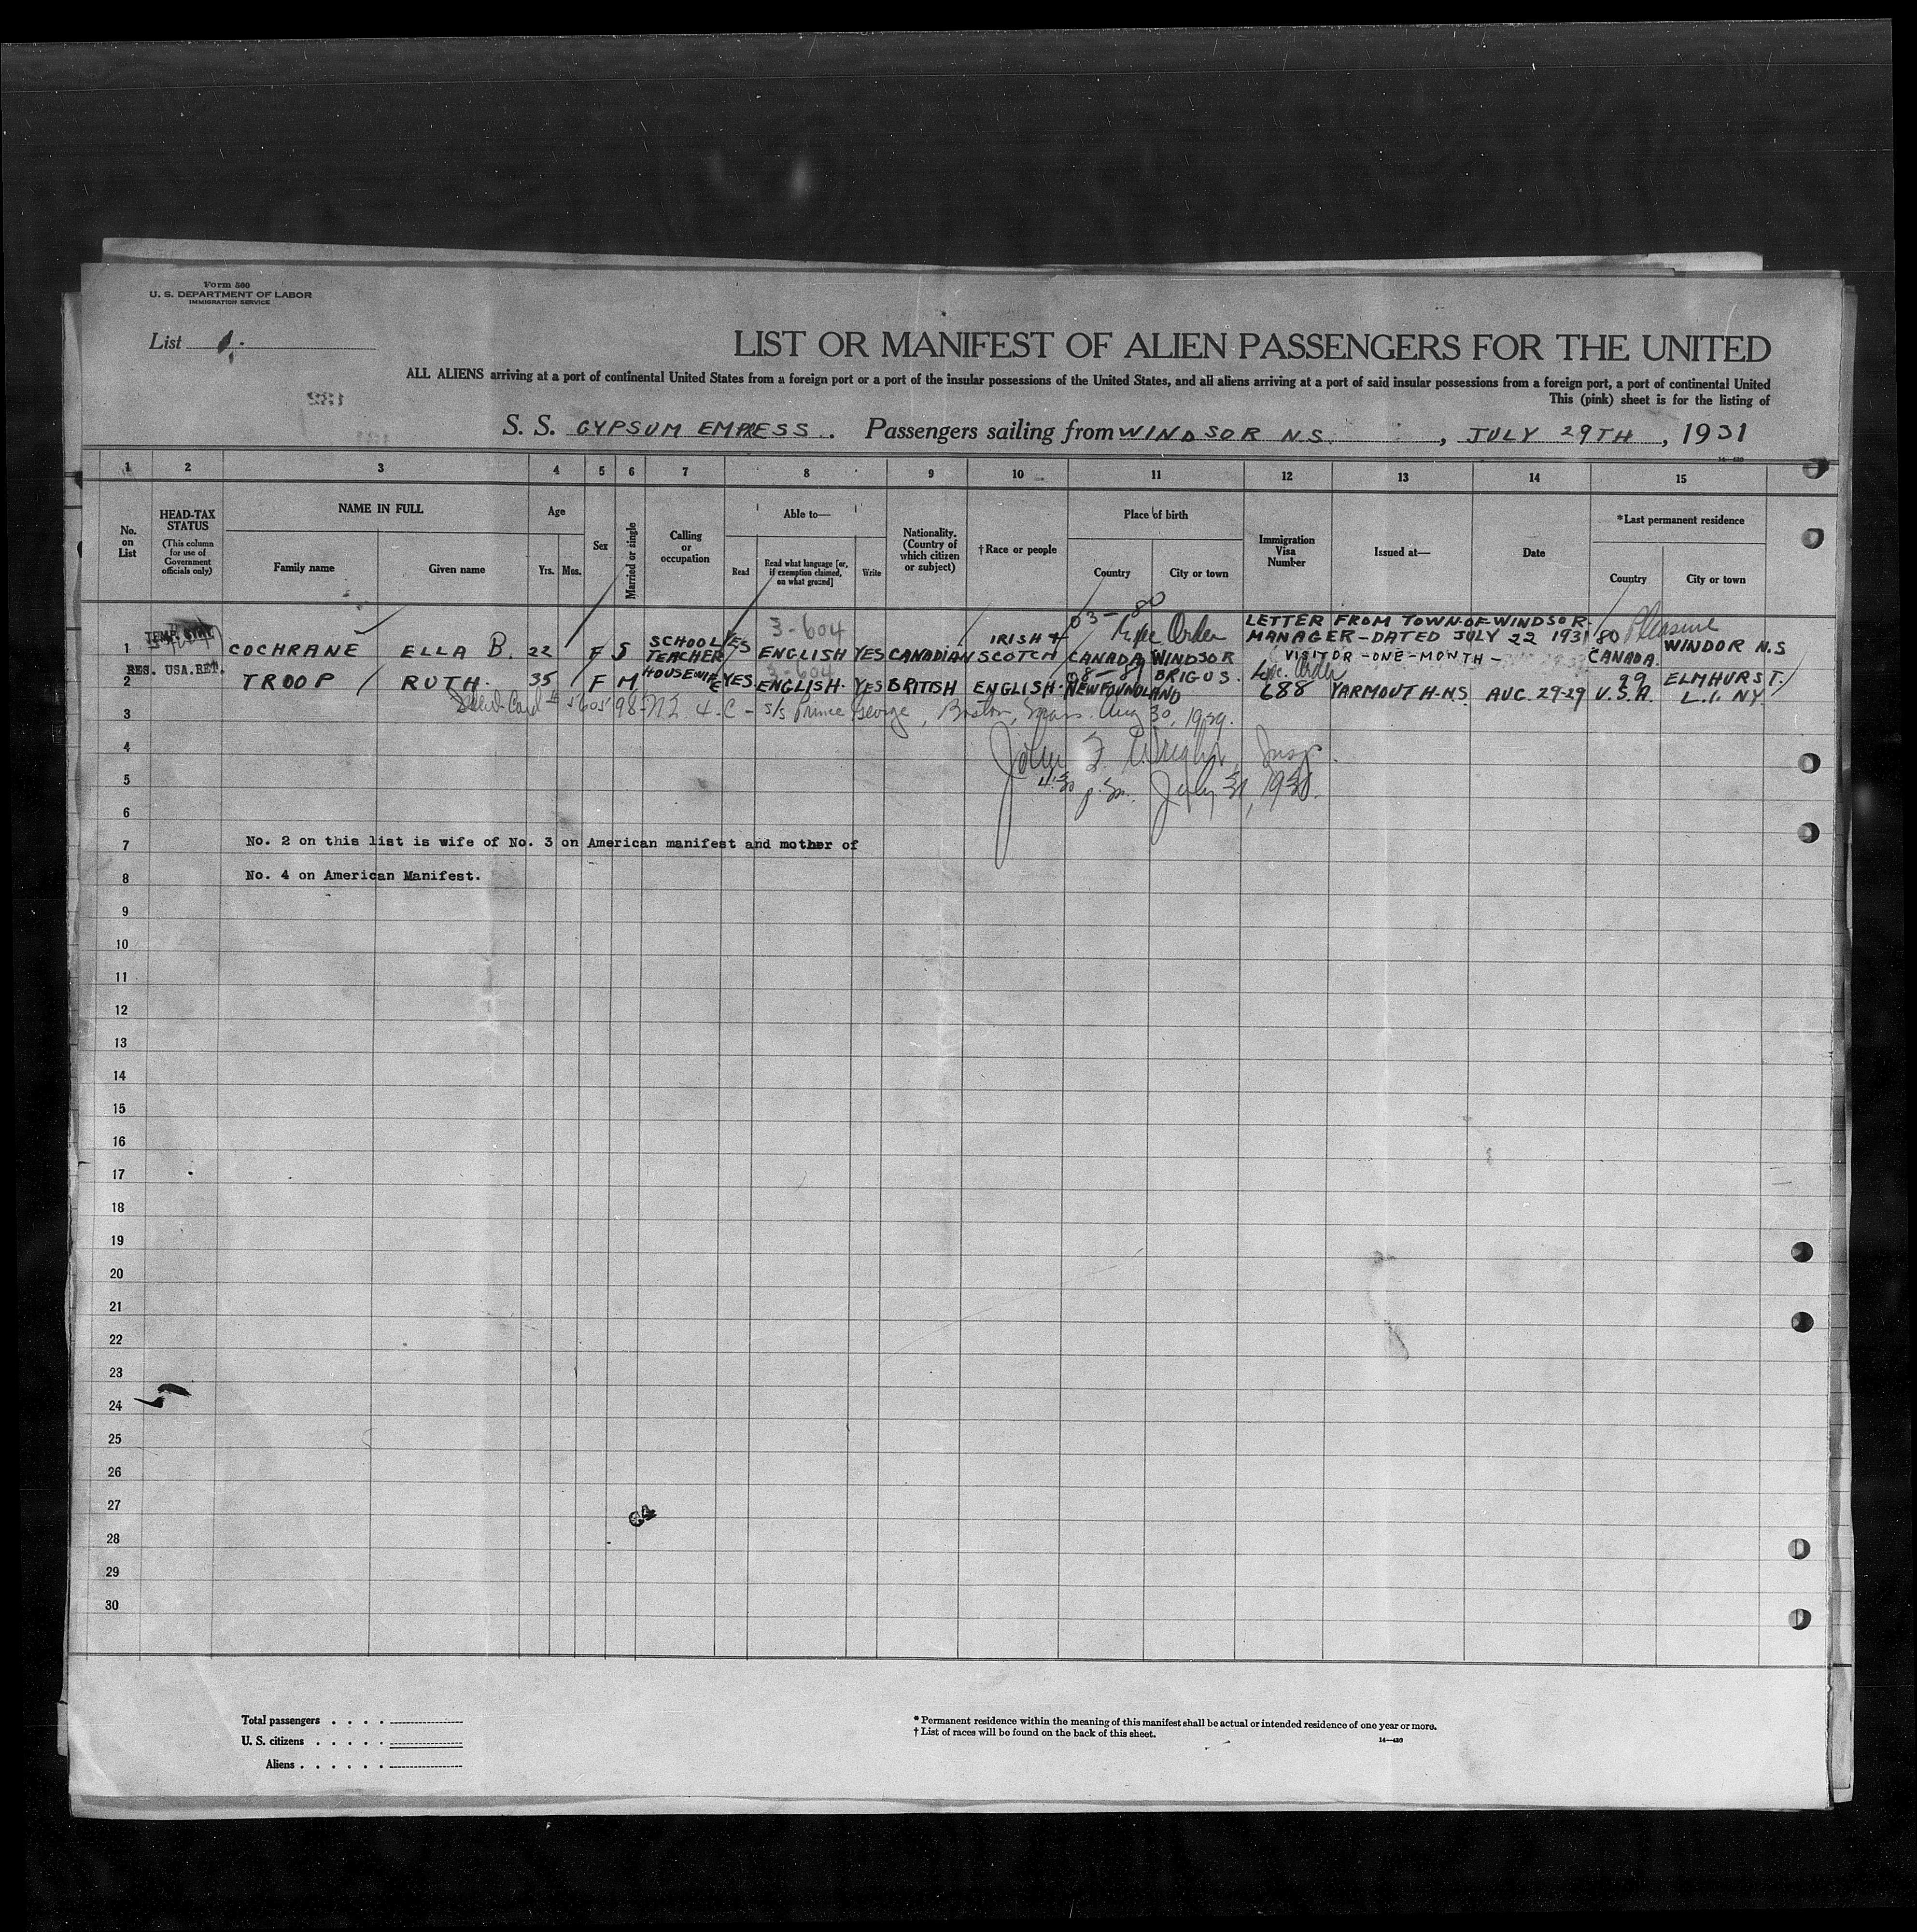 Form 500
U. S. DEPARTMENT OF LABOR
IMMIGRATION SERVICE
List 1.
LIST OR MANIFEST OF ALIEN PASSENGERS FOR THE UNITED
ALL ALIENS arriving at a port of continental United States from a foreign port or a port of the insular possessions of the United States, and all aliens arriving at a port of said insular possessions from a foreign port, a port of continental United
This (pink) sheet is for the listing of
S. S. GYPSUM EMPRESS. Passengers sailing from WINDSOR N.S., JULY 29TH, 1931
1 2 3 4 5 6 7 8 9 10 11 12 13 14 15
No. on List
HEAD-TAX STATUS (This column for use of Government officials only)
NAME IN FULL
Family name Given name
Age
Yrs. Mos.
Sex
Married or single
Calling or occupation
Able to—
Read Read what language [or, if exemption claimed, on what ground] Write
Nationality. (Country of which citizen or subject)
† Race or people
Place of birth
Country City or town
Immigration Visa Number
Issued at—
Date
*Last permanent residence
Country City or town
1 TEMP. STAY COCHRANE ELLA B. 22 F S SCHOOL TEACHER YES 3-604 ENGLISH YES CANADIAN IRISH & SCOTCH 03-80 CANADA WINDSOR LETTER FROM TOWN-OF-WINDSOR- MANAGER-DATED JULY 22 1931 VISITOR-ONE-MONTH- 80 Pleasure CANADA. WINDOR N.S
2 RES. USA. RET. TROOP RUTH. 35 F M HOUSEWIFE YES 3-604 ENGLISH. YES BRITISH ENGLISH. 08-89 NEWFOUNDLAND BRIGUS. 688 YARMOUTH-N.S. AUG. 29-29 99 U.S.A. ELMHURST. L.I. NY.
3 S/S Prince George, Boston, Mass. Aug 30, 1929.
4 John F. Wright, Insp.
5 4:30 p.m. July 31, 193
6
7 No. 2 on this list is wife of No. 3 on American manifest and mother of
8 No. 4 on American Manifest.
9
10
11
12
13
14
15
16
17
18
19
20
21
22
23
24
25
26
27
28
29
30
Total passengers . . . .
U. S. citizens . . . . .
Aliens . . . . . .
* Permanent residence within the meaning of this manifest shall be actual or intended residence of one year or more.
† List of races will be found on the back of this sheet.
14—430